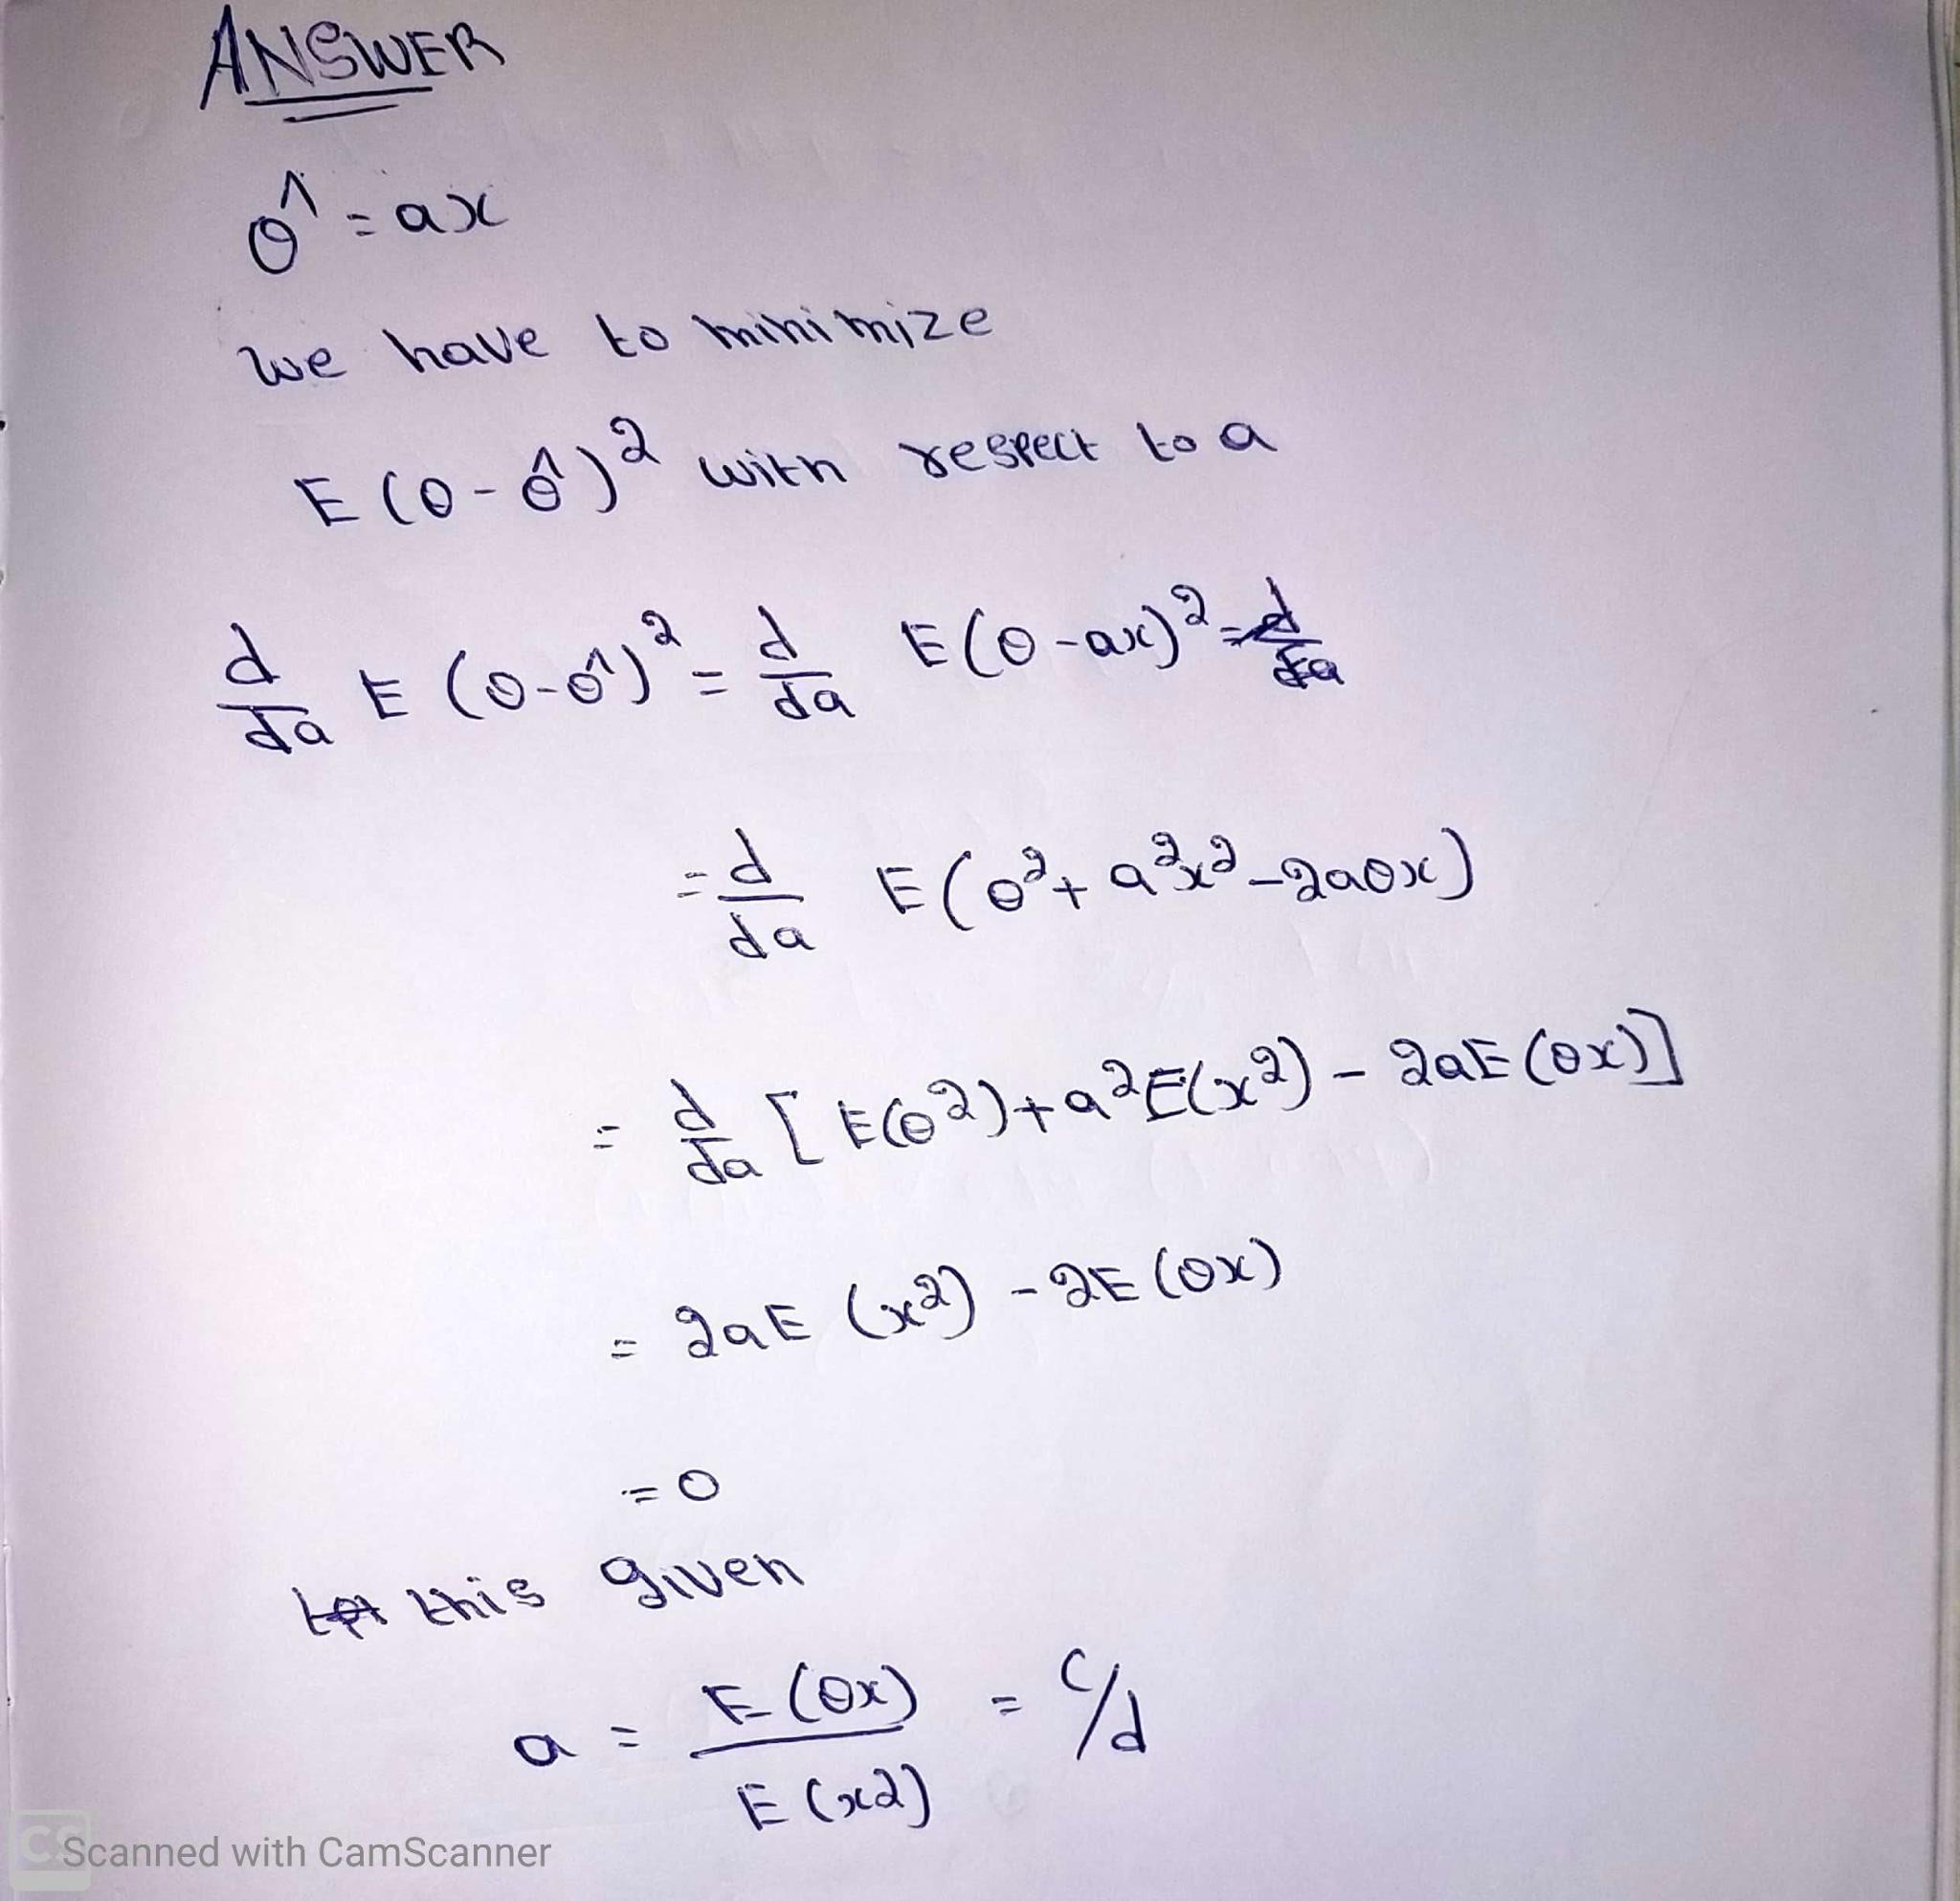 ANSWER
θ^ = ax
We have to minimize
E (θ - θ̂)² with respect to a
d/da E (θ-θ̂)² = d/da E(θ-ax)² = d/da
= d/da E(θ² + a²x² - 2aθx)
= d/da [E(θ²) + a²E(x²) - 2aE(θx)]
= 2aE (x²) - 2E (θx)
= 0
this given
a = E(θx) / E(x2) = c/d
CS Scanned with CamScanner